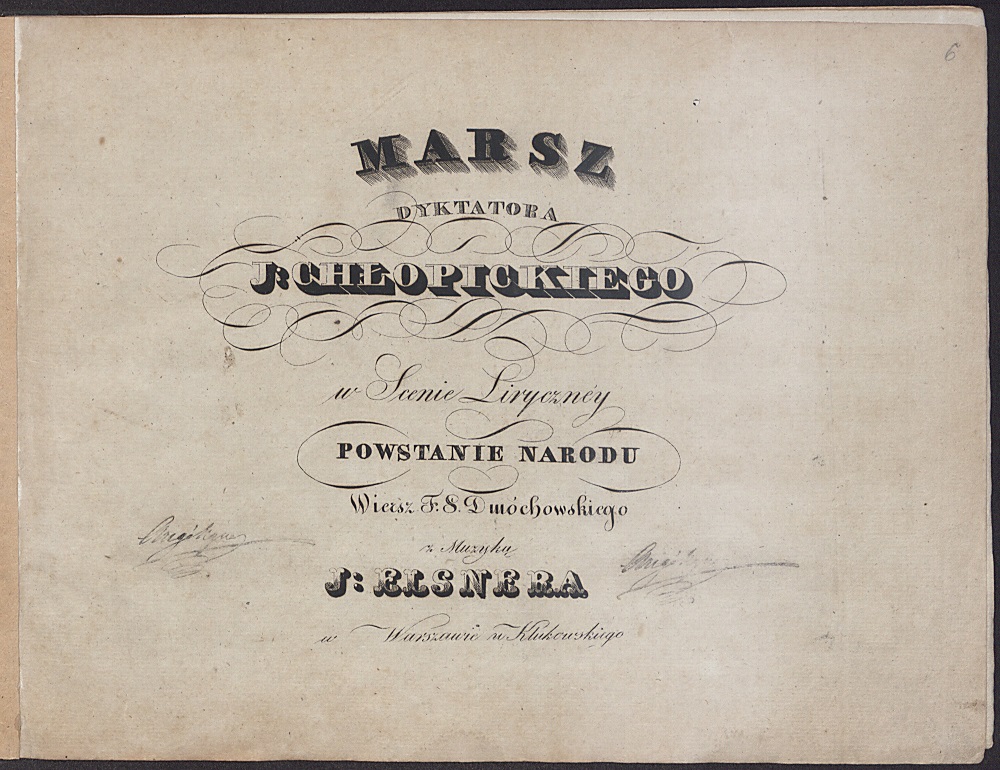 6
MARSZ
DYKTATORA
J: CHŁOPICKIEGO
w Scenie Lirycznéy
POWSTANIE NARODU
Wiersz F. S. Dmóchowskiego
z Muzyką
J: ELSNERA
w Warszawie u Klukowskiego